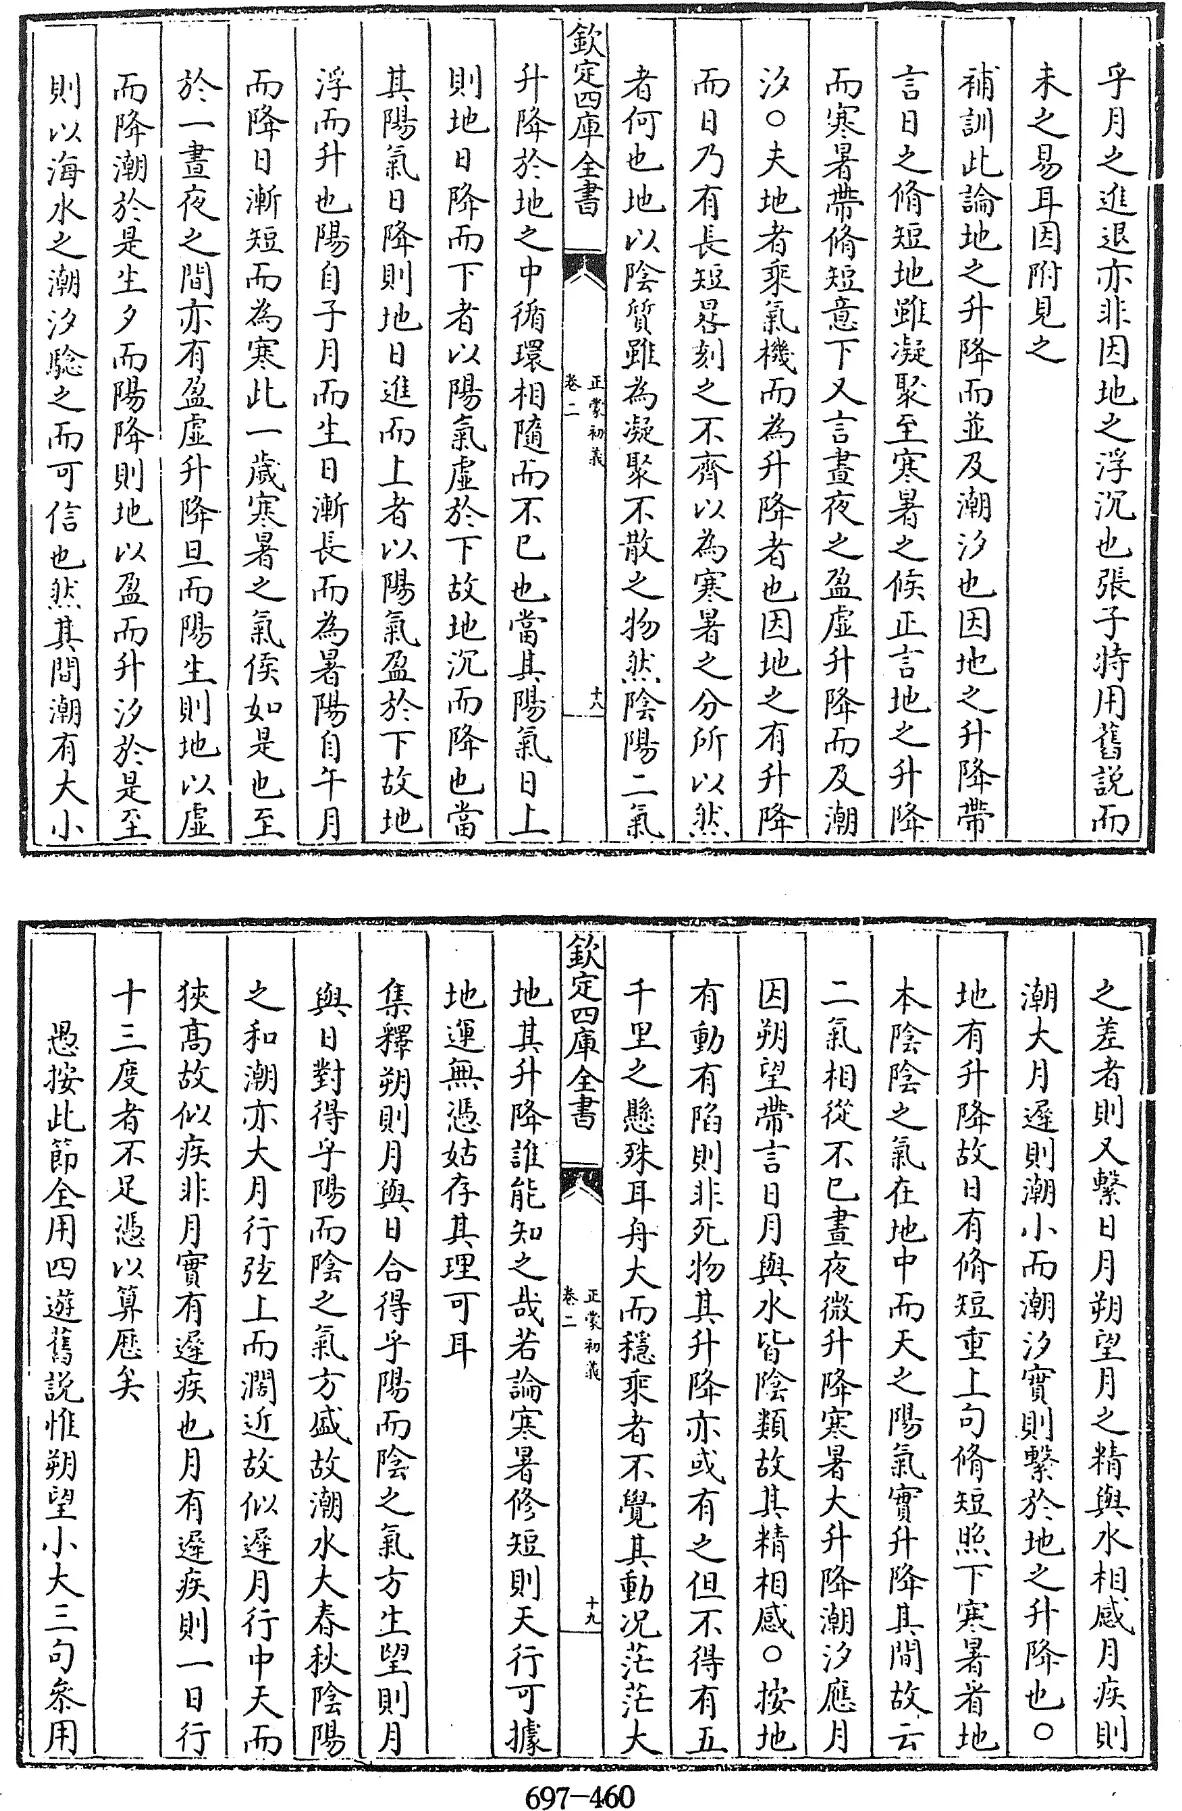 乎月之進退亦非因地之浮沉也張子特用舊說而
未之易耳因附見之
補訓此論地之升降而並及潮汐也因地之升降帶
言日之脩短地雖凝聚至寒暑之候正言地之升降
而寒暑帶脩短意下又言晝夜之盈虛升降而及潮
汐○夫地者乘氣機而為升降者也因地之有升降
而日乃有長短晷刻之不齊以為寒暑之分所以然
者何也地以陰質雖為凝聚不散之物然陰陽二氣
欽定四庫全書
正蒙初義
卷二
十八
升降於地之中循環相隨而不已也當其陽氣日上
則地日降而下者以陽氣虛於下故地沉而降也當
其陽氣日降則地日進而上者以陽氣盈於下故地
浮而升也陽自子月而生日漸長而為暑陽自午月
而降日漸短而為寒此一歲寒暑之氣候如是也至
於一晝夜之間亦有盈虛升降旦而陽生則地以虛
而降潮於是生夕而陽降則地以盈而升汐於是至
則以海水之潮汐驗之而可信也然其間潮有大小
之差者則又繫日月朔望月之精與水相感月疾則
潮大月遲則潮小而潮汐實則繫於地之升降也○
地有升降故日有脩短重上句脩短照下寒暑者地
本陰陰之氣在地中而天之陽氣實升降其間故云
二氣相從不已晝夜微升降寒暑大升降潮汐應月
因朔望帶言日月與水皆陰類故其精相感○按地
有動有陷則非死物其升降亦或有之但不得有五
千里之懸殊耳舟大而穩乘者不覺其動況茫茫大
欽定四庫全書
正蒙初義
卷二
十九
地其升降誰能知之哉若論寒暑修短則天行可據
地運無憑姑存其理可耳
集釋朔則月與日合得乎陽而陰之氣方生望則月
與日對得乎陽而陰之氣方盛故潮水大春秋陰陽
之和潮亦大月行弦上而濶近故似遲月行中天而
狹高故似疾非月實有遲疾也月有遲疾則一日行
十三度者不足憑以算厯矣
愚按此節全用四遊舊說惟朔望小大三句叅用
697-460